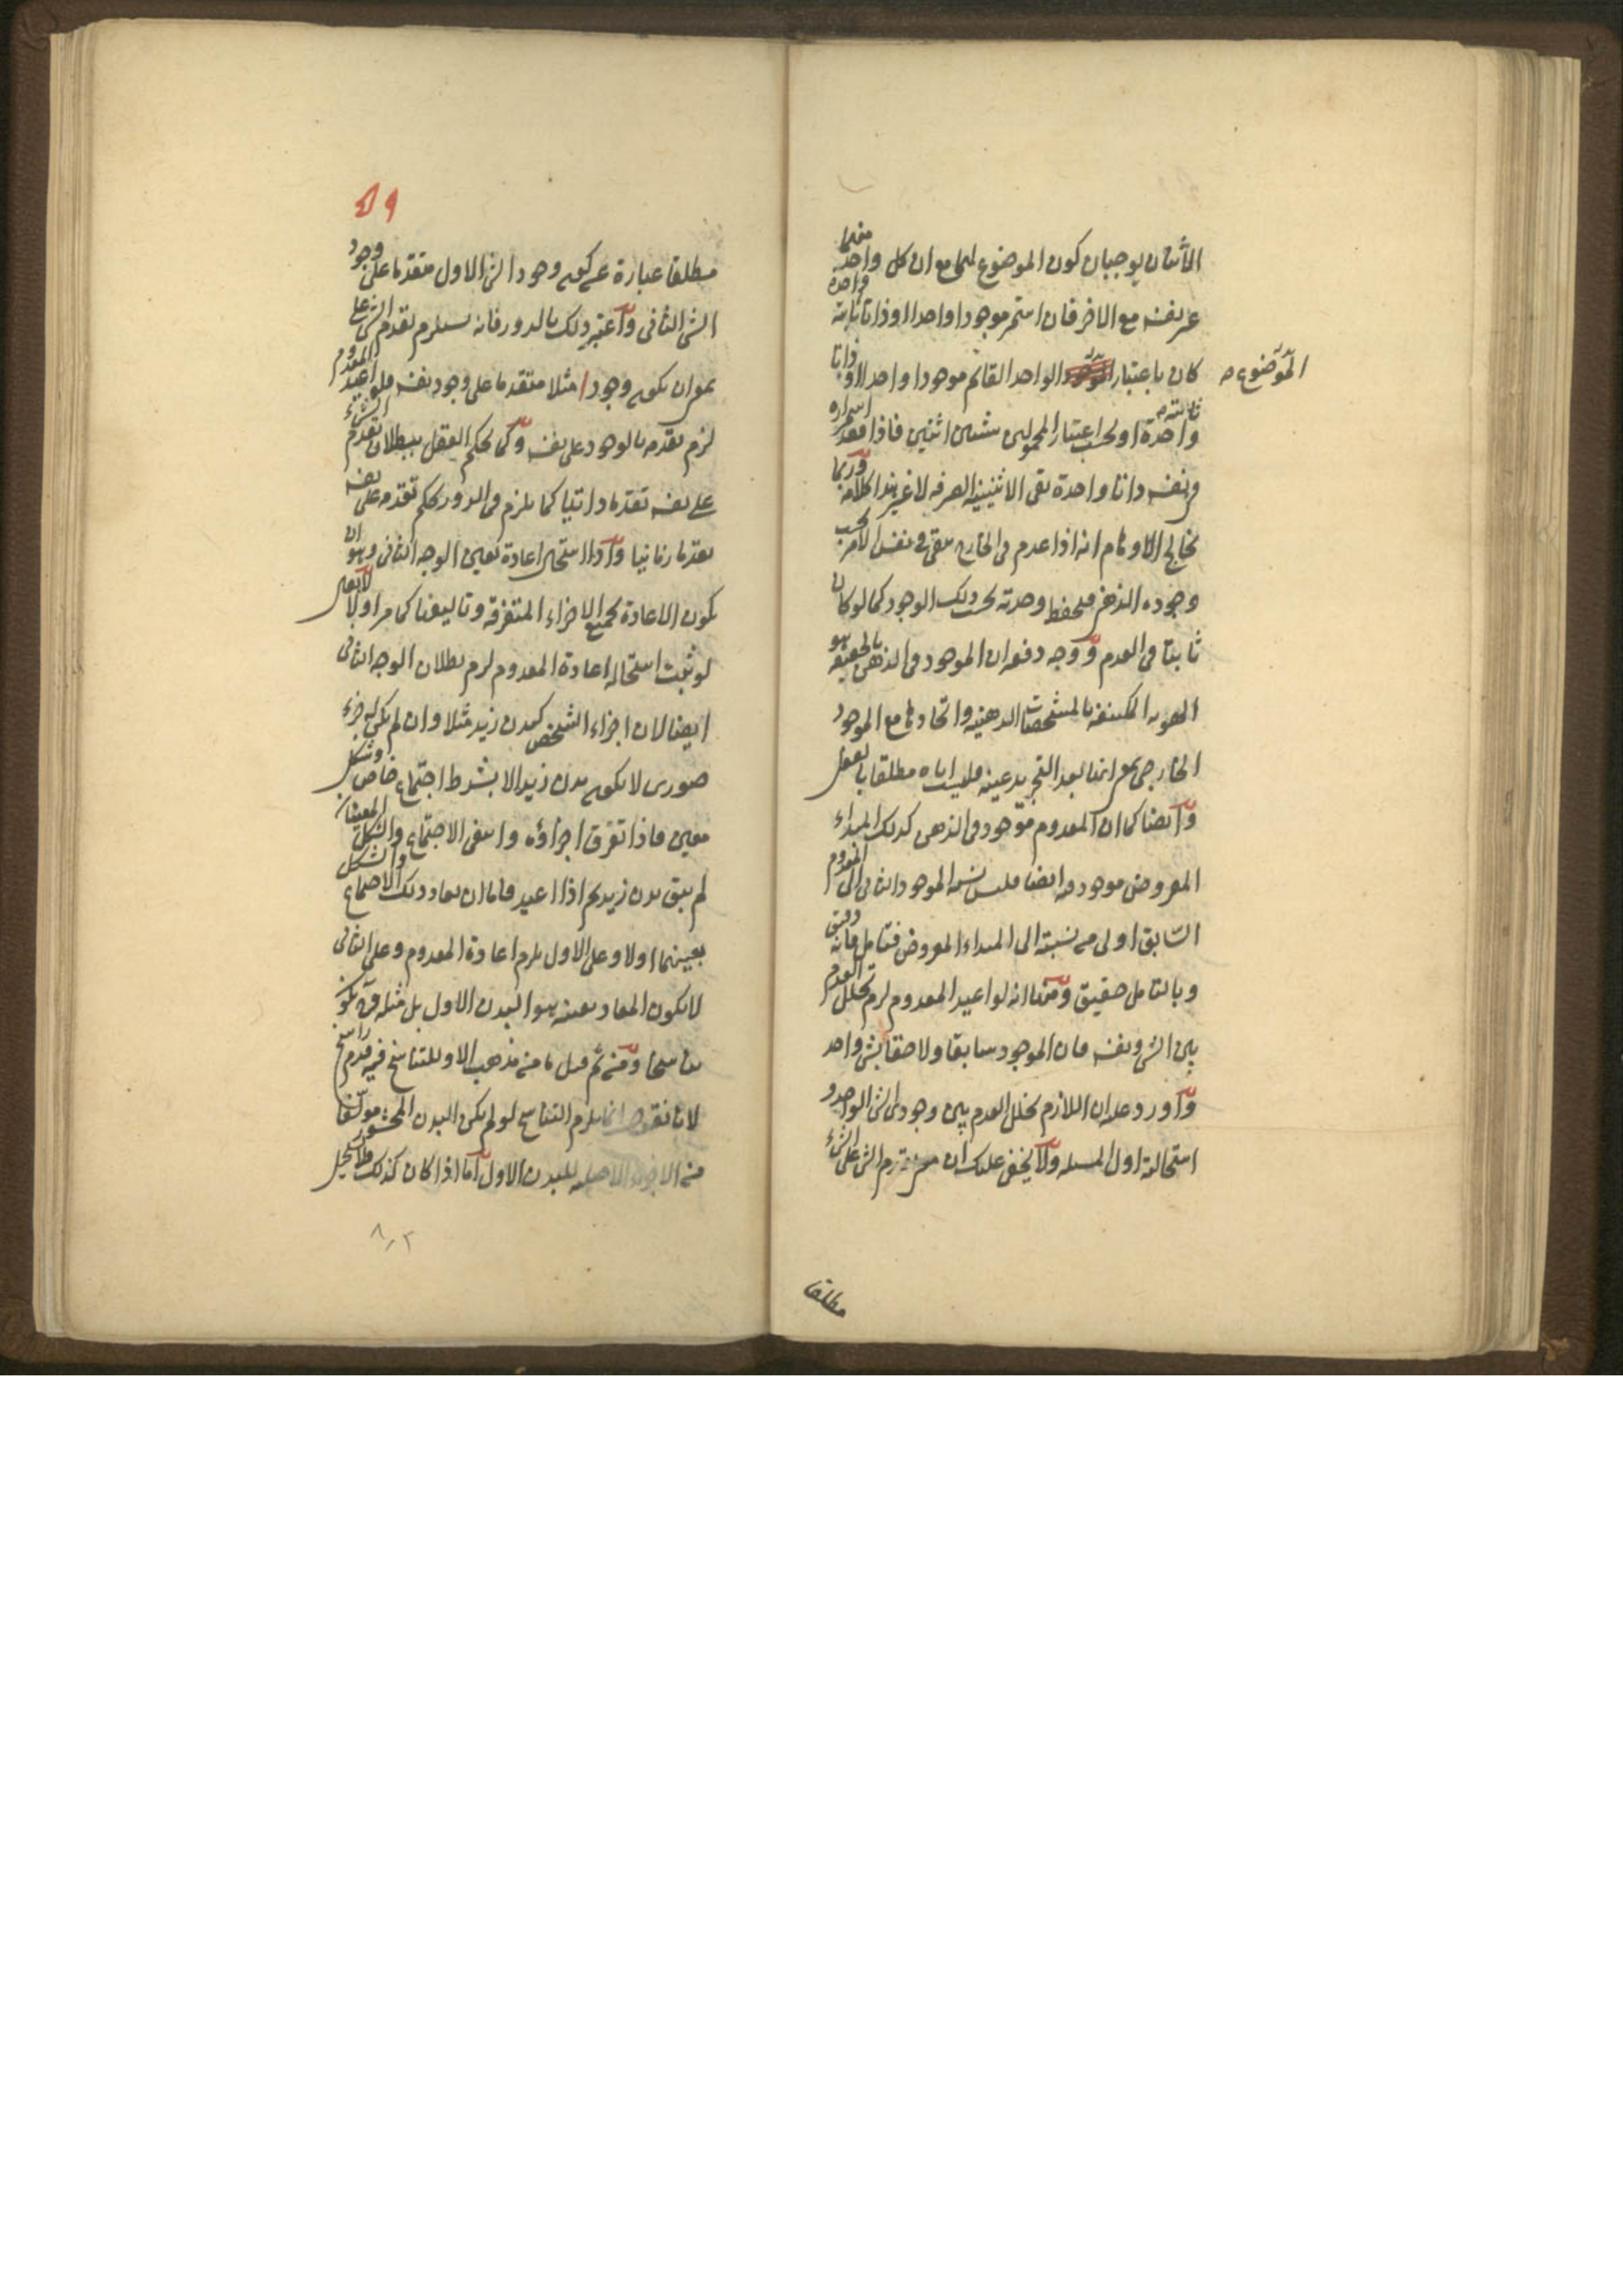 الاثنان يوجبان كون الموضوع لهما مع ان كل واحد منهما
عن نفسه مع الاخر فان استمر موجودا واحدا او ذاتا ثابتة واحدة
كان باعتبار الموضوع الواحد القائم موجودا واحدا او ذاتا
ثابتة واحدة او بحسب اعتبار المحمولين شيئين اثنين فاذا فقد استمراره
في نفسه ذاتا واحدة بقي الاثنينية الصرفه لا غير هذا كلامه وربما
يخالج الاوهام انه اذا عدم في الخارج يبقى في نفس الامر بحسب
وجوده الذهني فيحفظ وحدته بحسب ذلك الوجود كما لو كان
ثابتا في العدم ووجه دفعه ان الموجود في الذهن بالحقيقة هو
الهويه المكتنفه بالمشخصات الذهنيه واتحادها مع الموجود
الخارجي بمعنى انها بعد التجريد عينه فليست اياه مطلقا بالفعل
وايضا كما ان المعدوم موجود في الذهن كذلك المبداء
المفروض موجود فيه ايضا فليس نسبة الموجود الثاني الى المعدوم
السابق اولى من نسبته الى المبداء المفروض فتامل فانه دقيق
وبالتامل حقيق ومنها انه لو اعيد المعدوم لزم تخلل العدم
بين الشي ونفسه فان الموجود سابقا ولاحقا شي واحد
واورد عليه ان اللازم تخلل العدم بين وجودي الشي الواحد و
استحالته اول المسئله ولا يخفى عليك ان معنى تقدم الشي على الشيء
الموضوع
مطلقا
مطلقا عبارة عن كون وجود الشي الاول متقدما على وجود
الشي الثاني واعتبر ذلك بالدور فانه يستلزم تقدم الشي على
بمعنى ان يكون وجود ا مثلا متقدما على وجود نفسه فلو اعيد المعدوم
لزم تقدمه بالوجود على نفسه وكما يحكم العقل ببطلان تقدم الشيء
على نفسه تقدما ذاتيا كما يلزم في الدور يحكم تقدمه على نفسه
تقدما زمانيا واذا استحال اعادة تعين الوجه الثاني وهو ان
يكون الاعادة بجميع الاجزاء المتفرقة وتاليفها كما مر اولا لا يقال
لو ثبت استحالة اعادة المعدوم لزم بطلان الوجه الثاني
ايضا لان اجزاء الشخص كبدن زيد مثلا وان لم يكن له جزء
صوري لا يكون بدن زيد الا بشرط اجتماع خاص وشكل
معين فاذا تفرق اجزاؤه وانتفى الاجتماع والشكل المعينان
لم يبق بدن زيد ثم اذا اعيد فاما ان يعاد ذلك الاجتماع والشكل
بعينهما اولا وعلى الاول يلزم اعادة المعدوم وعلى الثاني
لا يكون المعاد بعينه هو البدن الاول بل مثله وح يكون
تناسخا ومن ثم قيل ما من مذهب الا وللتناسخ فيه قدم راسخ
لانا نقول انما يلزم التناسخ لو لم يكن البدن المحشور مولفا
من الاجزاء الاصلية للبدن الاول اما اذا كان كذلك فلا يستحيل